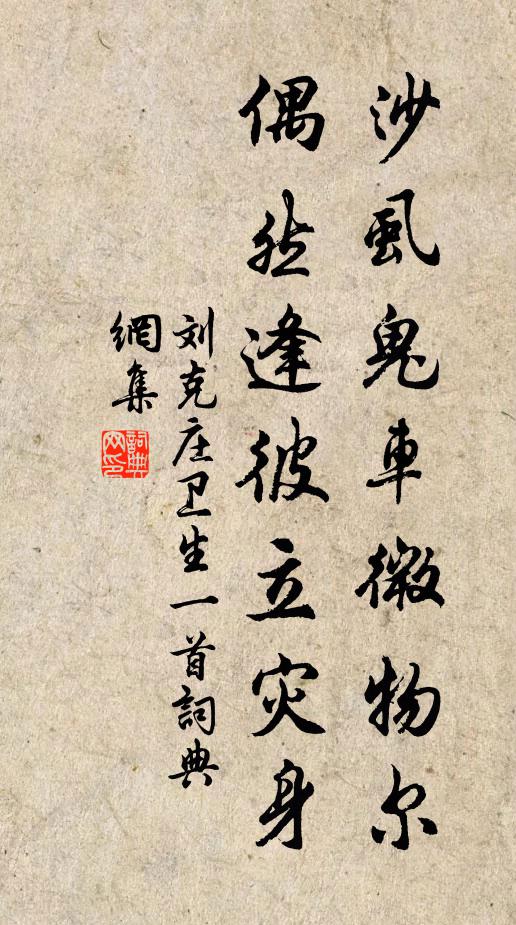 沙虱鬼車微物尔
偶然逢彼立灾身
刘克庄卫生一首詞典
網集
詞典网印